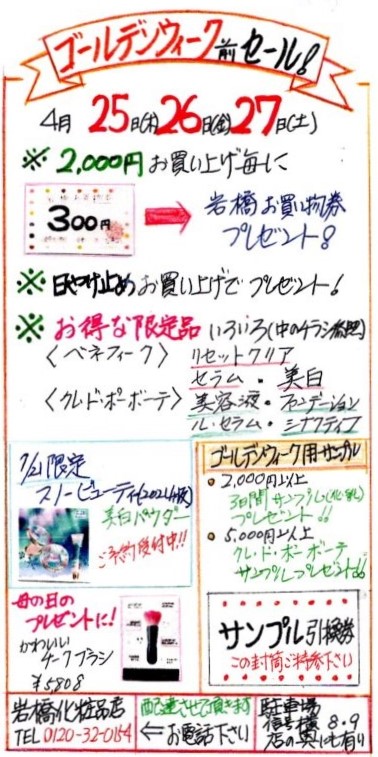 ゴールデンウィーク前セール!
4月 25日(木)26日(金)27日(土)
※ 2,000円お買い上げ毎に
300円
岩橋お買い物券
プレゼント!
※ 日やけ止めお買い上げでプレゼント!
※ お得な限定品 いろいろ(中のチラシ参照)
〈ベネフィーク〉 リセットクリア
セラム・美白
〈クレ・ド・ポーボーテ〉 美容液・ファンデーション
ル・セラム・シナクティフ
7/21限定
スノービューティ(2024版)
美白パウダー
ご予約受付中!!
ゴールデンウィーク用サンプル
2,000円以上
3日間サンプル(化・乳)
プレゼント!!
5,000円以上
クレ・ド・ポーボーテ
サンプルプレゼント!!
母の日の
プレゼントに!
かわいい
チークブラシ
¥5,808
サンプル引換券
この封筒ご持参下さい
岩橋化粧品店
TEL 0120-32-0154
配達させて頂きます
←お電話下さい
駐車場
信号横 8・9
店の奥にも有り